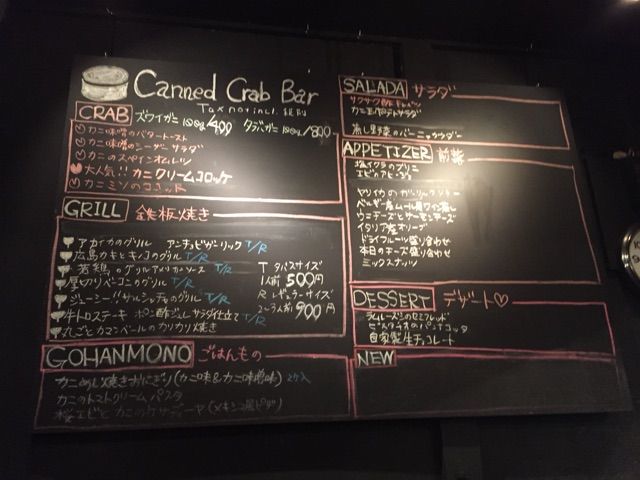 Canned Crab Bar
Tax not incl. 税別
CRAB ズワイガニ 100g/400 タラバガニ 100g/800
カニ味噌のバタートースト
カニ味噌のシーザーサラダ
カニのスペインオムレツ
大人気!! カニクリームコロッケ
カニミソのココット
GRILL 鉄板焼き
アカイカのグリル アンチョビガーリック T/R
広島カキとキノコのグリル T/R
若鶏のグリルアメリカンソース T/R
厚切りベーコンのグリル T/R
ジューシーソーセージのグリル T/R
牛トロステーキ ポン酢ジュレ サラダ仕立て T/R
丸ごとカマンベールのカリカリ焼き
T タパスサイズ
1人前 500円
R レギュラーサイズ
2~3人前 900円
GOHANMONO ごはんもの
カニめし焼きおにぎり(カニ味&カニ味噌味) 2ケ入
カニのトマトクリームパスタ
桜エビとカニのケサディーヤ(メキシコ風ピザ)
SALADA サラダ
カニ玉ポテトサラダ
蒸し野菜のバーニャカウダー
APPETIZER 前菜
塩イクラのブリニ
ヤリイカのガーリックソテー
ベルギー産ムール貝ワイン蒸し
ウニチーズとサーモンチーズ
イタリア産オリーブ
ドライフルーツ盛り合わせ
本日のチーズ盛り合わせ
ミックスナッツ
DESSERT デザート♡
ラムレーズンのセミフレッド
ピスタチオのパンナコッタ
自家製生チョコレート
NEW